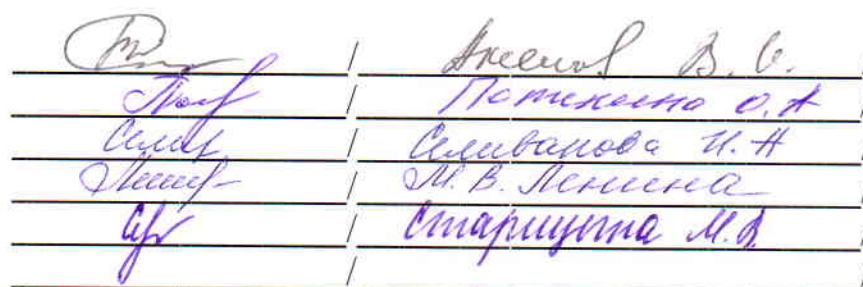 / Аксенов В. И.
/ Потехина О. А
Селив / Селиванова И. Н
/ М. В. Ленина
/ Старицына М. В.
/